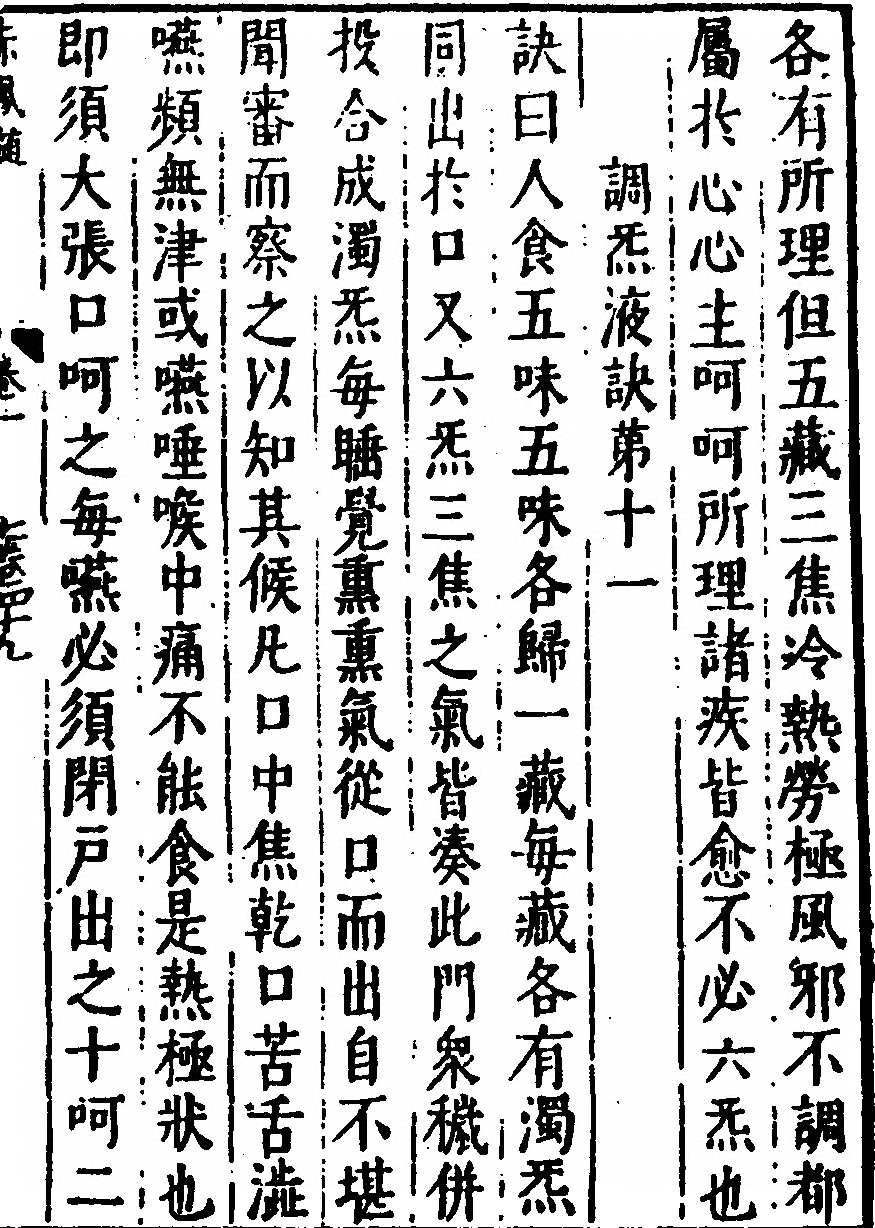 各有所理但五藏三焦冷熱勞極風邪不調都
屬於心心主呵呵所理諸疾皆愈不必六炁也
調炁液訣第十一
訣曰人食五味五味各歸一藏每藏各有濁炁
同出於口又六炁三焦之氣皆湊此門衆穢併
投合成濁炁每睡覺熏熏氣從口而出自不堪
聞審而察之以知其候凡口中焦乾口苦舌澁
嚥頻無津或嚥唾喉中痛不能食是熱極狀也
即須大張口呵之每嚥必須閉戶出之十呵二
卷一